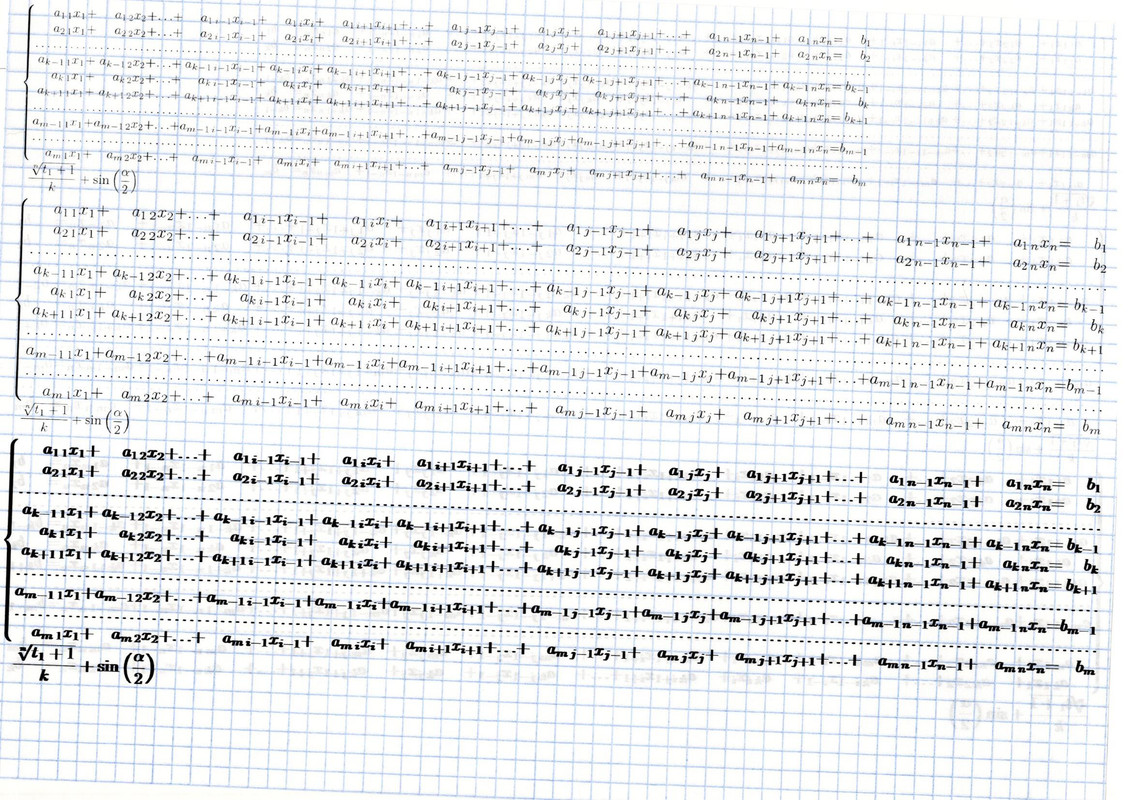 a_{11}x_1+ a_{12}x_2+...+ a_{1i-1}x_{i-1}+ a_{1i}x_i+ a_{1i+1}x_{i+1}+...+ a_{1j-1}x_{j-1}+ a_{1j}x_j+ a_{1j+1}x_{j+1}+...+ a_{1n-1}x_{n-1}+ a_{1n}x_n= b_1
a_{21}x_1+ a_{22}x_2+...+ a_{2i-1}x_{i-1}+ a_{2i}x_i+ a_{2i+1}x_{i+1}+...+ a_{2j-1}x_{j-1}+ a_{2j}x_j+ a_{2j+1}x_{j+1}+...+ a_{2n-1}x_{n-1}+ a_{2n}x_n= b_2
a_{k-11}x_1+ a_{k-12}x_2+...+ a_{k-1i-1}x_{i-1}+ a_{k-1i}x_i+ a_{k-1i+1}x_{i+1}+...+ a_{k-1j-1}x_{j-1}+ a_{k-1j}x_j+ a_{k-1j+1}x_{j+1}+...+ a_{k-1n-1}x_{n-1}+ a_{k-1n}x_n= b_{k-1}
a_{k1}x_1+ a_{k2}x_2+...+ a_{ki-1}x_{i-1}+ a_{ki}x_i+ a_{ki+1}x_{i+1}+...+ a_{kj-1}x_{j-1}+ a_{kj}x_j+ a_{kj+1}x_{j+1}+...+ a_{kn-1}x_{n-1}+ a_{kn}x_n= b_k
a_{k+11}x_1+ a_{k+12}x_2+...+ a_{k+1i-1}x_{i-1}+ a_{k+1i}x_i+ a_{k+1i+1}x_{i+1}+...+ a_{k+1j-1}x_{j-1}+ a_{k+1j}x_j+ a_{k+1j+1}x_{j+1}+...+ a_{k+1n-1}x_{n-1}+ a_{k+1n}x_n= b_{k+1}
a_{m-11}x_1+a_{m-12}x_2+...+a_{m-1i-1}x_{i-1}+a_{m-1i}x_i+a_{m-1i+1}x_{i+1}+...+a_{m-1j-1}x_{j-1}+a_{m-1j}x_j+a_{m-1j+1}x_{j+1}+...+a_{m-1n-1}x_{n-1}+a_{m-1n}x_n=b_{m-1}
a_{m1}x_1+ a_{m2}x_2+...+ a_{mi-1}x_{i-1}+ a_{mi}x_i+ a_{mi+1}x_{i+1}+...+ a_{mj-1}x_{j-1}+ a_{mj}x_j+ a_{mj+1}x_{j+1}+...+ a_{mn-1}x_{n-1}+ a_{mn}x_n= b_m
√(t_1 + 1)/k + sin (α/2)
a_{11}x_1+ a_{12}x_2+...+ a_{1i-1}x_{i-1}+ a_{1i}x_i+ a_{1i+1}x_{i+1}+...+ a_{1j-1}x_{j-1}+ a_{1j}x_j+ a_{1j+1}x_{j+1}+...+ a_{1n-1}x_{n-1}+ a_{1n}x_n= b_1
a_{21}x_1+ a_{22}x_2+...+ a_{2i-1}x_{i-1}+ a_{2i}x_i+ a_{2i+1}x_{i+1}+...+ a_{2j-1}x_{j-1}+ a_{2j}x_j+ a_{2j+1}x_{j+1}+...+ a_{2n-1}x_{n-1}+ a_{2n}x_n= b_2
a_{k-11}x_1+ a_{k-12}x_2+...+ a_{k-1i-1}x_{i-1}+ a_{k-1i}x_i+ a_{k-1i+1}x_{i+1}+...+ a_{k-1j-1}x_{j-1}+ a_{k-1j}x_j+ a_{k-1j+1}x_{j+1}+...+ a_{k-1n-1}x_{n-1}+ a_{k-1n}x_n= b_{k-1}
a_{k1}x_1+ a_{k2}x_2+...+ a_{ki-1}x_{i-1}+ a_{ki}x_i+ a_{ki+1}x_{i+1}+...+ a_{kj-1}x_{j-1}+ a_{kj}x_j+ a_{kj+1}x_{j+1}+...+ a_{kn-1}x_{n-1}+ a_{kn}x_n= b_k
a_{k+11}x_1+ a_{k+12}x_2+...+ a_{k+1i-1}x_{i-1}+ a_{k+1i}x_i+ a_{k+1i+1}x_{i+1}+...+ a_{k+1j-1}x_{j-1}+ a_{k+1j}x_j+ a_{k+1j+1}x_{j+1}+...+ a_{k+1n-1}x_{n-1}+ a_{k+1n}x_n= b_{k+1}
a_{m-11}x_1+a_{m-12}x_2+...+a_{m-1i-1}x_{i-1}+a_{m-1i}x_i+a_{m-1i+1}x_{i+1}+...+a_{m-1j-1}x_{j-1}+a_{m-1j}x_j+a_{m-1j+1}x_{j+1}+...+a_{m-1n-1}x_{n-1}+a_{m-1n}x_n=b_{m-1}
a_{m1}x_1+ a_{m2}x_2+...+ a_{mi-1}x_{i-1}+ a_{mi}x_i+ a_{mi+1}x_{i+1}+...+ a_{mj-1}x_{j-1}+ a_{mj}x_j+ a_{mj+1}x_{j+1}+...+ a_{mn-1}x_{n-1}+ a_{mn}x_n= b_m
√(t_1 + 1)/k + sin (α/2)
a_{11}x_1+ a_{12}x_2+...+ a_{1i-1}x_{i-1}+ a_{1i}x_i+ a_{1i+1}x_{i+1}+...+ a_{1j-1}x_{j-1}+ a_{1j}x_j+ a_{1j+1}x_{j+1}+...+ a_{1n-1}x_{n-1}+ a_{1n}x_n= b_1
a_{21}x_1+ a_{22}x_2+...+ a_{2i-1}x_{i-1}+ a_{2i}x_i+ a_{2i+1}x_{i+1}+...+ a_{2j-1}x_{j-1}+ a_{2j}x_j+ a_{2j+1}x_{j+1}+...+ a_{2n-1}x_{n-1}+ a_{2n}x_n= b_2
a_{k-11}x_1+ a_{k-12}x_2+...+ a_{k-1i-1}x_{i-1}+ a_{k-1i}x_i+ a_{k-1i+1}x_{i+1}+...+ a_{k-1j-1}x_{j-1}+ a_{k-1j}x_j+ a_{k-1j+1}x_{j+1}+...+ a_{k-1n-1}x_{n-1}+ a_{k-1n}x_n= b_{k-1}
a_{k1}x_1+ a_{k2}x_2+...+ a_{ki-1}x_{i-1}+ a_{ki}x_i+ a_{ki+1}x_{i+1}+...+ a_{kj-1}x_{j-1}+ a_{kj}x_j+ a_{kj+1}x_{j+1}+...+ a_{kn-1}x_{n-1}+ a_{kn}x_n= b_k
a_{k+11}x_1+ a_{k+12}x_2+...+ a_{k+1i-1}x_{i-1}+ a_{k+1i}x_i+ a_{k+1i+1}x_{i+1}+...+ a_{k+1j-1}x_{j-1}+ a_{k+1j}x_j+ a_{k+1j+1}x_{j+1}+...+ a_{k+1n-1}x_{n-1}+ a_{k+1n}x_n= b_{k+1}
a_{m-11}x_1+a_{m-12}x_2+...+a_{m-1i-1}x_{i-1}+a_{m-1i}x_i+a_{m-1i+1}x_{i+1}+...+a_{m-1j-1}x_{j-1}+a_{m-1j}x_j+a_{m-1j+1}x_{j+1}+...+a_{m-1n-1}x_{n-1}+a_{m-1n}x_n=b_{m-1}
a_{m1}x_1+ a_{m2}x_2+...+ a_{mi-1}x_{i-1}+ a_{mi}x_i+ a_{mi+1}x_{i+1}+...+ a_{mj-1}x_{j-1}+ a_{mj}x_j+ a_{mj+1}x_{j+1}+...+ a_{mn-1}x_{n-1}+ a_{mn}x_n= b_m
√(t_1 + 1)/k + sin (α/2)